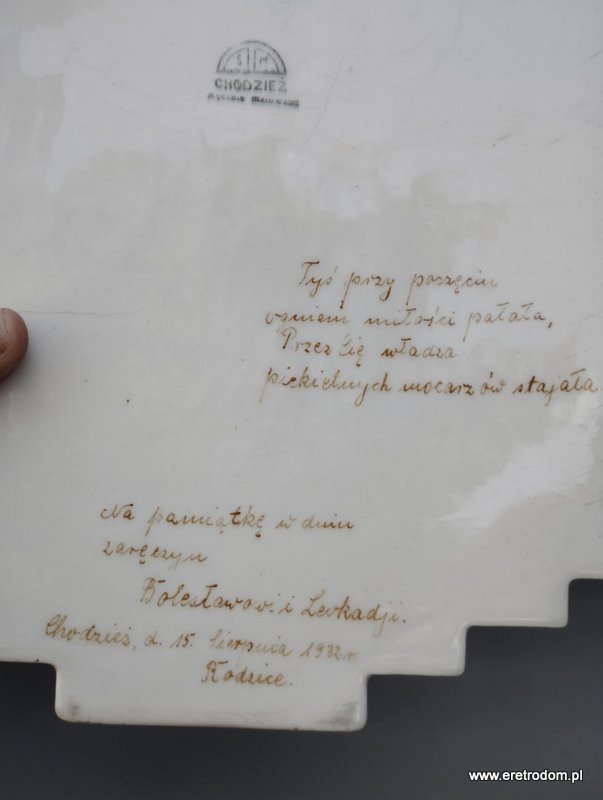 S M
CHODZIEŻ
Ręcznie malowane
Tyś przy poczęciu
ogniem miłości pałała,
Przez Cię władza
piekielnych mocarzów stajała
Na pamiątkę w dniu
zaręczyn
Bolesławowi i Leokadji.
Chodzież, d. 15. Sierpnia 1932 r.
Rodzice.
www.eretrodom.pl